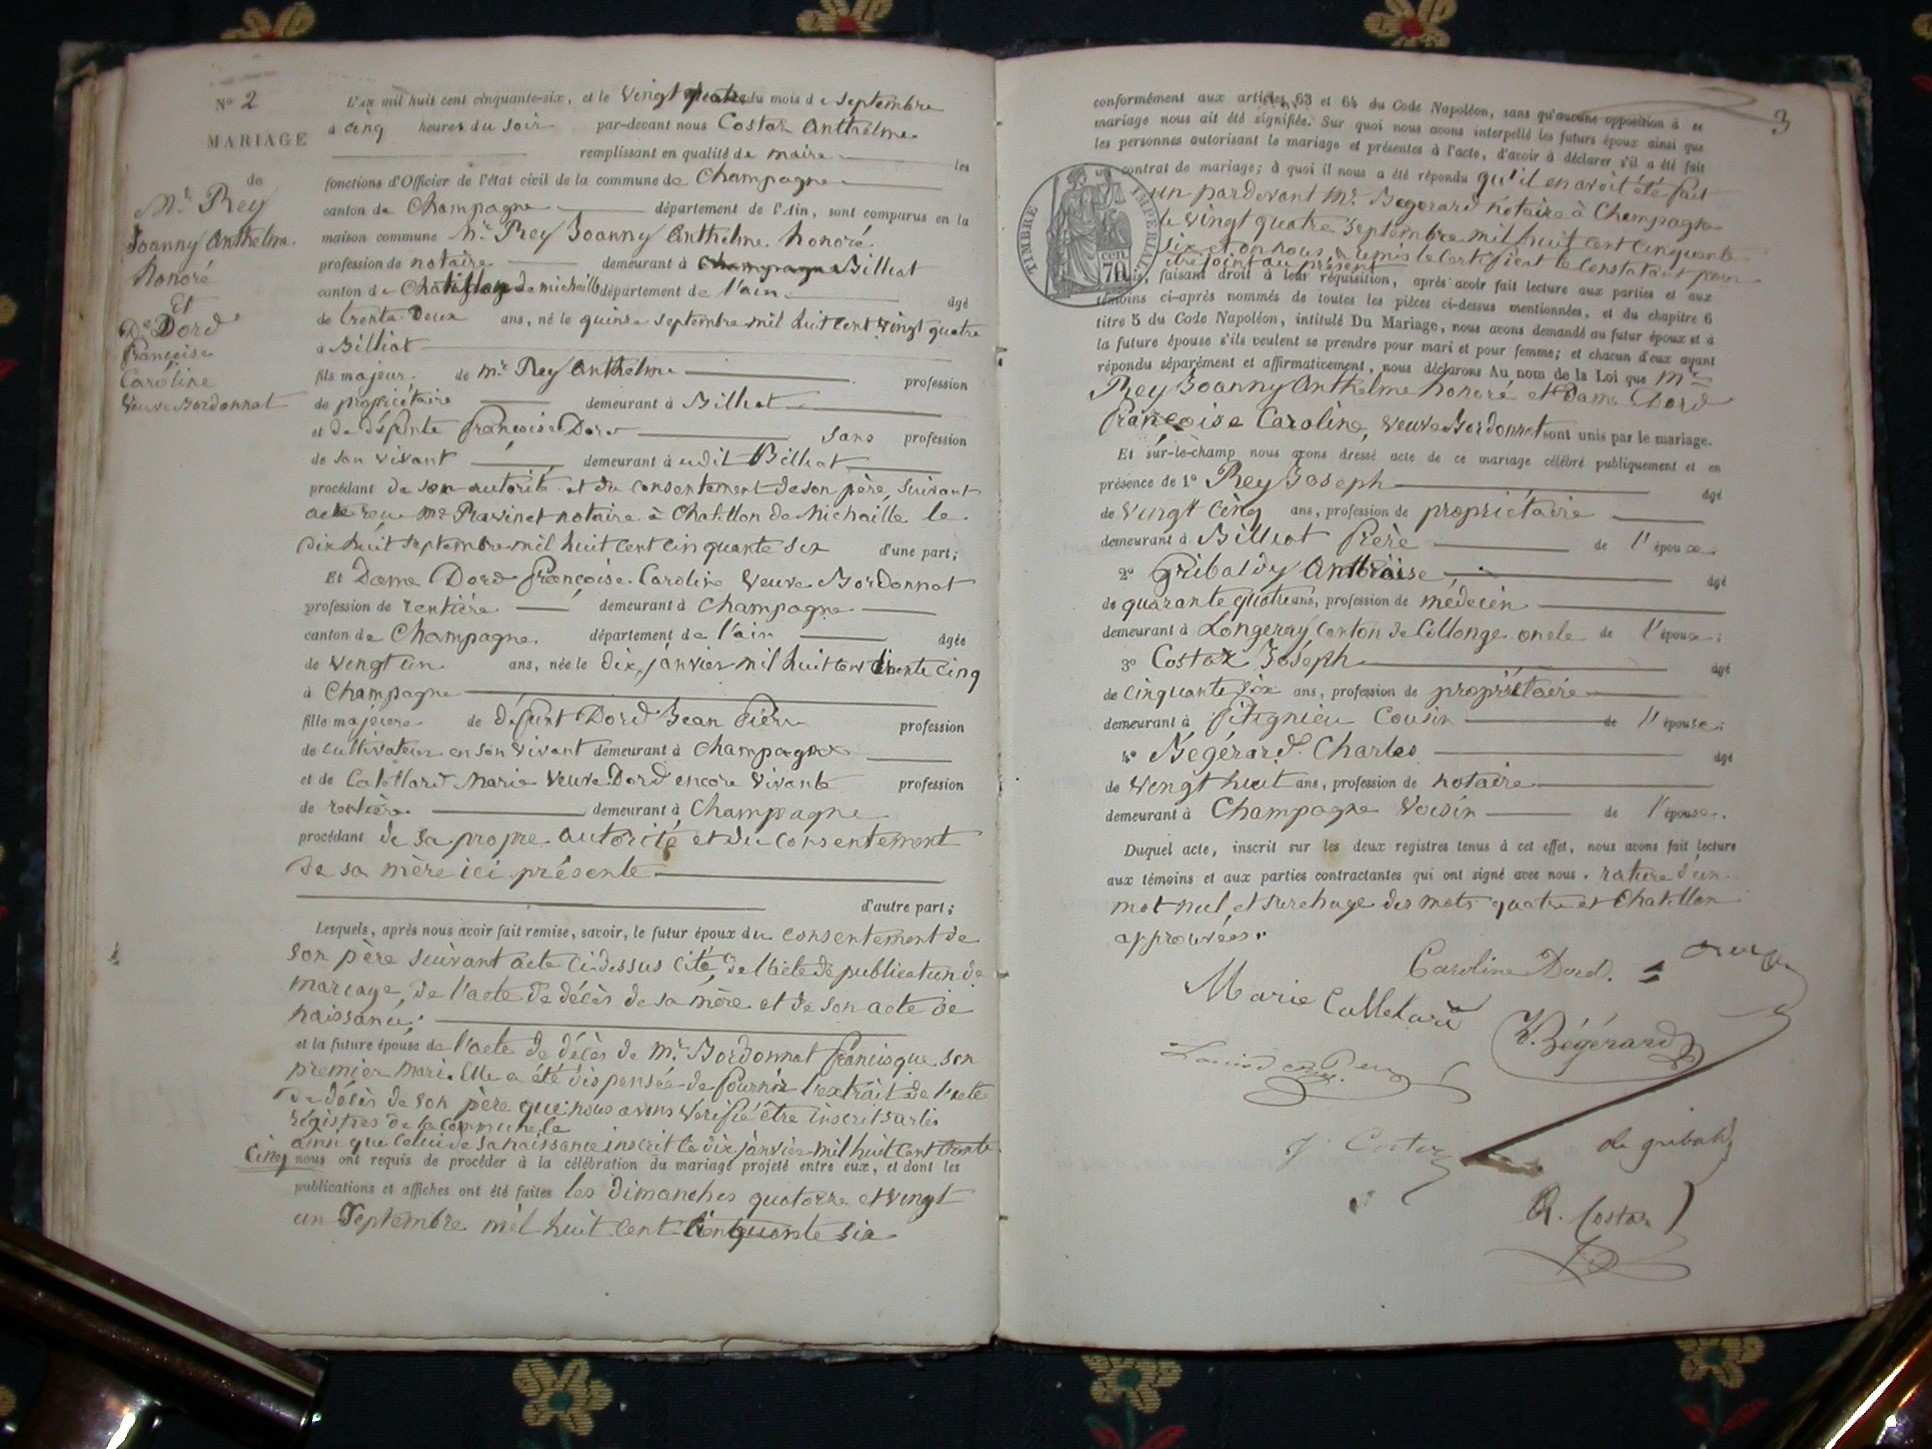 N° 2
MARIAGE
de
Mr Rey
Joanny Anthelme
honoré
Et
De Dord
françoise
Caroline
Veuve Bordonnat
L'an mil huit cent cinquante-six, et le Vingt quatre du mois de Septembre
à cinq heures du soir par-devant nous Costaz Anthelme
remplissant en qualité de maire les
fonctions d'Officier de l'état civil de la commune de Champagne
canton de Champagne département de l'Ain, sont comparus en la
maison commune Mr Rey Joanny Anthelme honoré
profession de notaire demeurant à Champagne Billiat
canton de Chatillon de michaille département de l'ain âgé
de trente Deux ans, né le quinze septembre mil huit cent vingt quatre
à Billiat
fils majeur de mr Rey Anthelme profession
de propriétaire demeurant à Billiat
et de défunte françoise Dord Sans profession
de son vivant demeurant à udit Billiat
procédant de son autorité et du consentement de son père, Suivant
acte reçu Me Pravinet notaire à Chatillon de Michaille le
dix huit septembre mil huit cent cinquante six d'une part;
Et Dame Dord françoise Caroline Veuve Bordonnat
profession de rentière demeurant à Champagne
canton de Champagne département de l'ain âgée
de vingt un ans, née le dix janvier mil huit cent trente cinq
à Champagne
fille majeure de défunt Dord Jean Pierre profession
de cultivateur en son vivant demeurant à Champagne
et de Callettard Marie Veuve Dord encore vivante profession
de rentière demeurant à Champagne
procédant de sa propre autorité et du consentement
de sa mère ici présente
d'autre part;
Lesquels, après nous avoir fait remise, savoir, le futur époux du consentement de
son père suivant acte ci-dessus cité, de l'acte de publication de
mariage, de l'acte de décès de sa mère et de son acte de
naissance.
et la future épouse de l'acte de décès de Mr Bordonnat francisque son
premier mari. Elle a été dispensée de fournir l'extrait de l'acte
de décès de son père que nous avons vérifié être inscrit sur les
registres de la commune le
ainsi que celui de sa naissance inscrit le dix janvier mil huit cent trente
Cinq nous ont requis de procéder à la célébration du mariage projeté entre eux, et dont les
publications et affiches ont été faites les dimanches quatorze et vingt
un Septembre mil huit cent cinquante six
3
conformément aux articles 63 et 64 du Code Napoléon, sans qu'aucune opposition à ce
mariage nous ait été signifiée. Sur quoi nous avons interpellé les futurs époux ainsi que
les personnes autorisant le mariage et présentes à l'acte, d'avoir à déclarer s'il a été fait
contrat de mariage; à quoi il nous a été répondu qu'il en avoit été fait
un pardevant Me Begerard notaire à Champagne
le vingt quatre Septembre mil huit cent cinquante
six et on nous a remis le certificat le constatant pour
être joint au présent
faisant droit à leur réquisition, après avoir fait lecture aux parties et aux
témoins ci-après nommés de toutes les pièces ci-dessus mentionnées, et du chapitre 6
titre 5 du Code Napoléon, intitulé Du Mariage, nous avons demandé au futur époux et à
la future épouse s'ils veulent se prendre pour mari et pour femme; et chacun d'eux ayant
répondu séparément et affirmativement, nous déclarons Au nom de la Loi que Mr
Rey Joanny Anthelme honoré et Dame Dord
françoise Caroline, Veuve Bordonnat sont unis par le mariage.
Et sur-le-champ nous avons dressé acte de ce mariage célébré publiquement et en
présence de 1° Rey Joseph âgé
de vingt cinq ans, profession de propriétaire
demeurant à Billiat frère de l'époux
2° Gribaldy Ambroise âgé
de quarante quatre ans, profession de médecin
demeurant à Longeray canton de Collonge oncle de l'épouse;
3° Costaz Joseph âgé
de cinquante six ans, profession de propriétaire
demeurant à fitignieu Cousin de l'épouse;
4° Begérard Charles âgé
de Vingt huit ans, profession de notaire
demeurant à Champagne Voisin de l'épouse.
Duquel acte, inscrit sur les deux registres tenus à cet effet, nous avons fait lecture
aux témoins et aux parties contractantes qui ont signé avec nous. rature d'un
mot nul, et surcharge des mots quatre et Chatillon
approuvées.
TIMBRE IMPÉRIAL
70 cen.
Caroline Dord
Marie Callettard
Bégérard
J Costaz
de gribaldy
A. Costaz